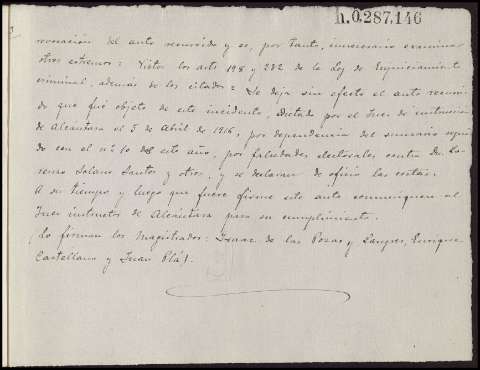 h.0.287.146
revocación del auto recurrido y es, por tanto, innecesario examinar
otros extremos = Vistos los arts 198 y 232 de la Ley de Enjuiciamiento
criminal, además de los citados = Se deja sin efecto el auto recurri
do que fué objeto de este incidente, dictado por el Juez de instrucción
de Alcántara el 5 de Abril de 1916, por dependencia del sumario segui
do con el nº 10 de este año, por falsedades electorales contra D. Lo
renzo Solano Santos y otros, y se declaran de oficio las costas.
A su tiempo y luego que fuere firme este auto comuníquese al
Juez instructor de Alcántara para su cumplimiento.
(Lo firman los Magistrados: Isaac de las Pozas y Langre, Enrique
Castellano y Juan Plá).